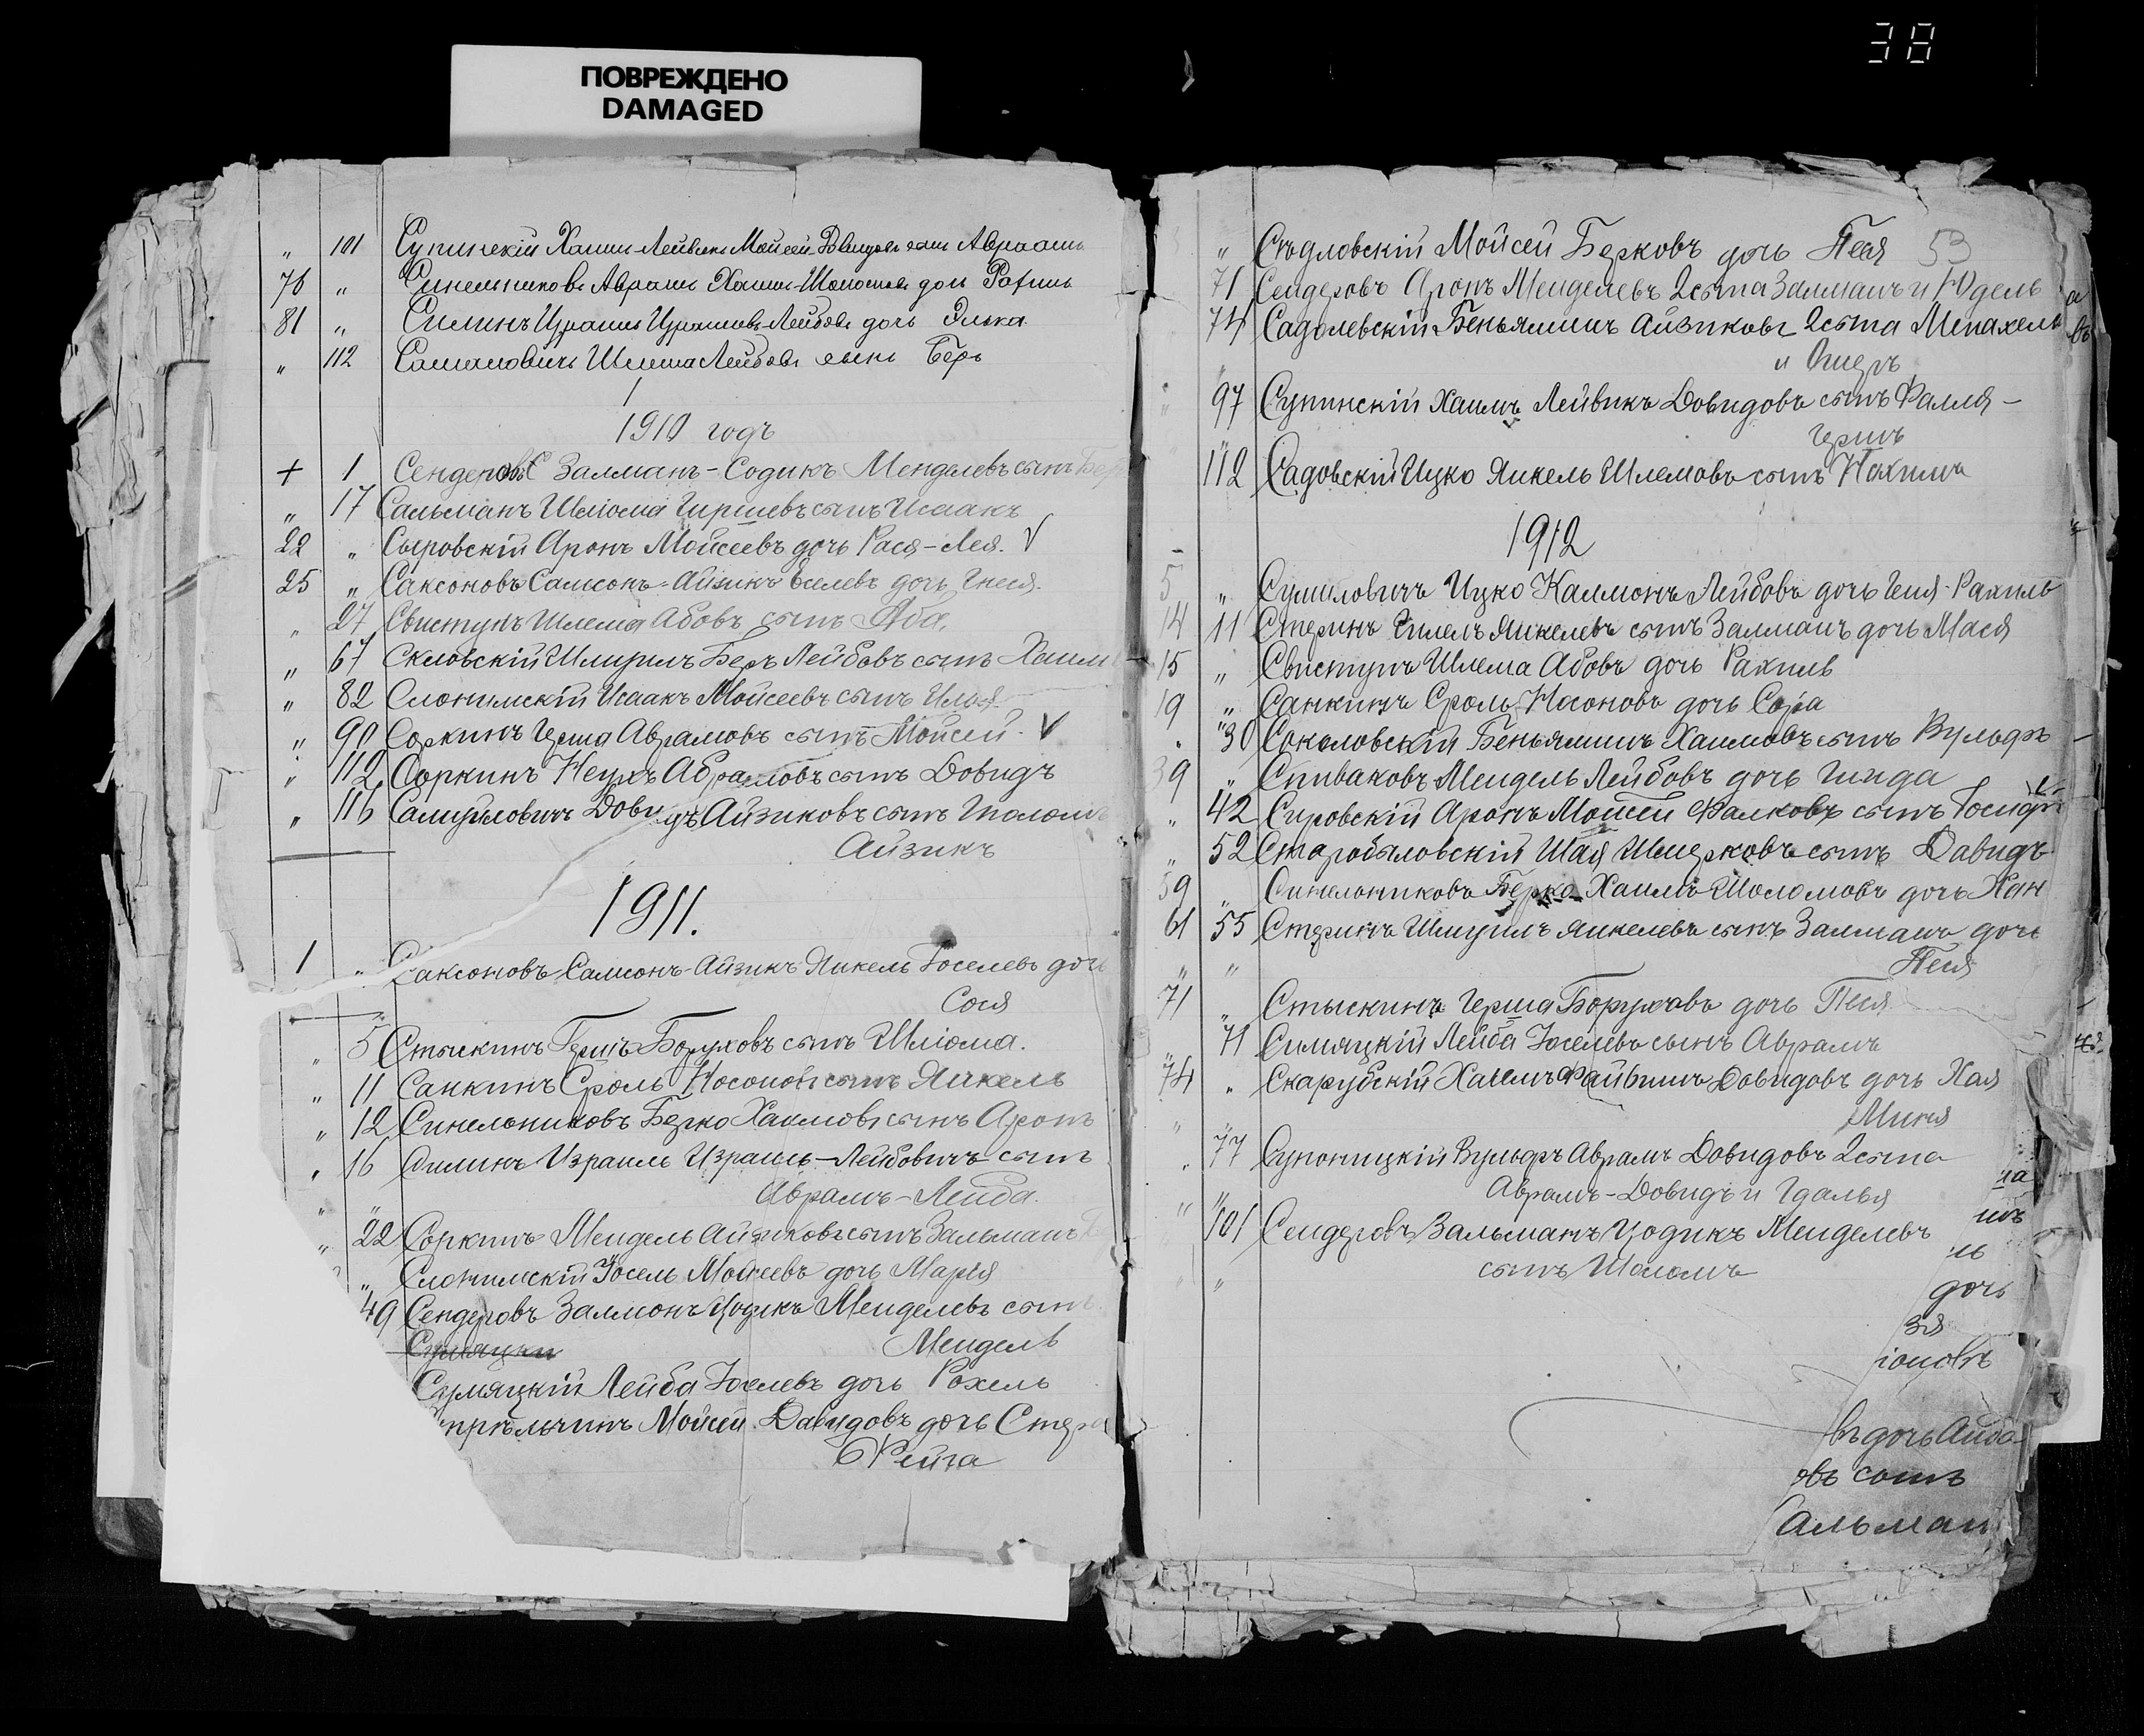 38
ПОВРЕЖДЕНО
DAMAGED
„ 101 Супинскій Хаимъ-Лейвикъ Мойсей-Довидовъ сынъ Авраамъ
76 „ Синельниковъ Абрамъ Хаимъ-Шоломовъ дочь Рахиль
81 „ Силинъ Израиль Израилевъ-Лейбовъ дочь Элька
„ 112 Лейбовъ сынъ Беръ
1910 годъ
+ 1 Сендеровъ Залманъ-Содикъ Менделевъ сынъ
„ 17 Сальманъ Шліома Гиршевъ сынъ Исаакъ
22 „ Сыровскій Аронъ Мойсеевъ дочь Рася-Лея. V
25 „ Саксоновъ Самсонъ-Айзикъ Еселевъ дочь Гнеся.
„ 27 Свистунъ Шлема Абовъ сынъ Аба.
„ 67 Беръ Лейбовъ сынъ Хаимъ
„ 82 Слонимскій Исаакъ Мойсеевъ сынъ Илья
„ 90 Соркинъ Герша Авраамовъ сынъ Мойсей. V
„ 112 Соркинъ Неухъ Абрамовъ сынъ Довидъ
„ 116 Самуиловичъ Довидъ Айзиковъ сынъ Шоломъ
Айзикъ
1911.
1 „ Саксоновъ-Самсонъ-Айзикъ Янкель Іоселевъ дочь
Сося
„ 5 Стыскинъ Гершъ Боруховъ сынъ Шліома.
„ 11 Санкинъ Сроль Носоновъ сынъ Янкель
„ 12 Синельниковъ Берко Хаимовъ сынъ Аронъ
„ 16 Силинъ Израиль Израиль-Лейбовичъ сынъ
Аврамъ-Лейба.
„ 22 Соркинъ Мендель Айзиковъ сынъ Зальманъ
„ Слонимскій Іосель Мойсеевъ дочь Марія
49 Сендеровъ Залмонъ Цодикъ Менделевъ сынъ
Мендель
Симяцкій Лейба Іоселевъ дочь Рохель
Мойсей Давидовъ дочь
Фейга
„ Сѣдловскій Мойсей Берковъ дочь Песя 53
71 Сендеровъ Аронъ Менделевъ 2 сына Залманъ и Юдель
74 Садолевскій Беньяминъ Айзиковъ 2 сына Менахель
и
97 Супинскій Хаимъ Лейвикъ Довидовъ сынъ Фалля-
Гершъ
112 Садовскій Ицко Янкель Шлемовъ сынъ Нахимъ
1912
5 „ Сумиловичъ Ицко Калмонъ Лейбовъ дочь Геня-Рахиль
14 11 Стеринъ Гилелъ Янкелевъ сынъ Залманъ дочь Мася
15 „ Свистунъ Шлема Абовъ дочь Рахиль
19 „ Санкинъ Сроль Носоновъ дочь Сора
„ 30 Соколовскій Беньяминъ Хаимовъ сынъ Вульфъ
39 „ Спиваковъ Мендель Лейбовъ дочь Гинда
„ 42 Сировскій Аронъ Мойсей Фалковъ сынъ Іосифъ
„ 52 Старобыловскій Шая Шмерковъ сынъ Давидъ
59 „ Синельниковъ Берко Хаимъ-Шоломовъ дочь Хан
61 55 Стеринъ Шмуилъ Янкелевъ сынъ Залманъ дочь
„ „ Песя
71 „ Стыскинъ Герша Боруховъ дочь Песя
„ 71 Симяцкій Лейба Іоселевъ сынъ Аврамъ
74 „ Скарубскій Хаимъ Файвишъ Довидовъ дочь Хая
Миня
„ 77 Супоницкій Вульфъ Аврамъ Довидовъ 2 сына
Аврамъ-Довидъ и Гдалья
„ 101 Сендеровъ Зальманъ Цодикъ Менделевъ
„ сынъ Шоломъ
дочь
зя
іоновъ
въ дочь
овъ сынъ
альман